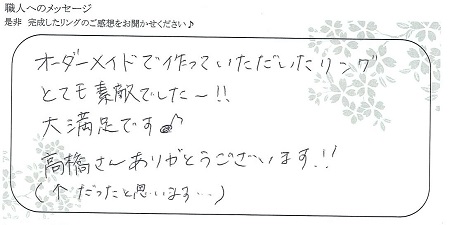 職人へのメッセージ
是非 完成したリングのご感想をお聞かせください♪
オーダーメイドで作っていただいたリング
とても素敵でした～!!
大満足です♪
高橋さんありがとうございます!!
(だったと思います…)